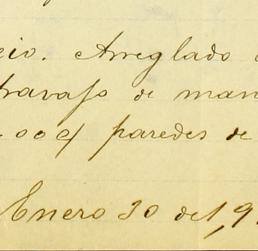 cio. Arreglado
travajo de man
.00 paredes de
Enero 30 de 1,9